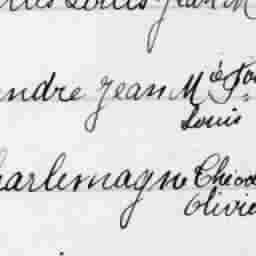 Louis Jean M
ndre Jean Mie
Louis
harlemagne Théod
Olivie